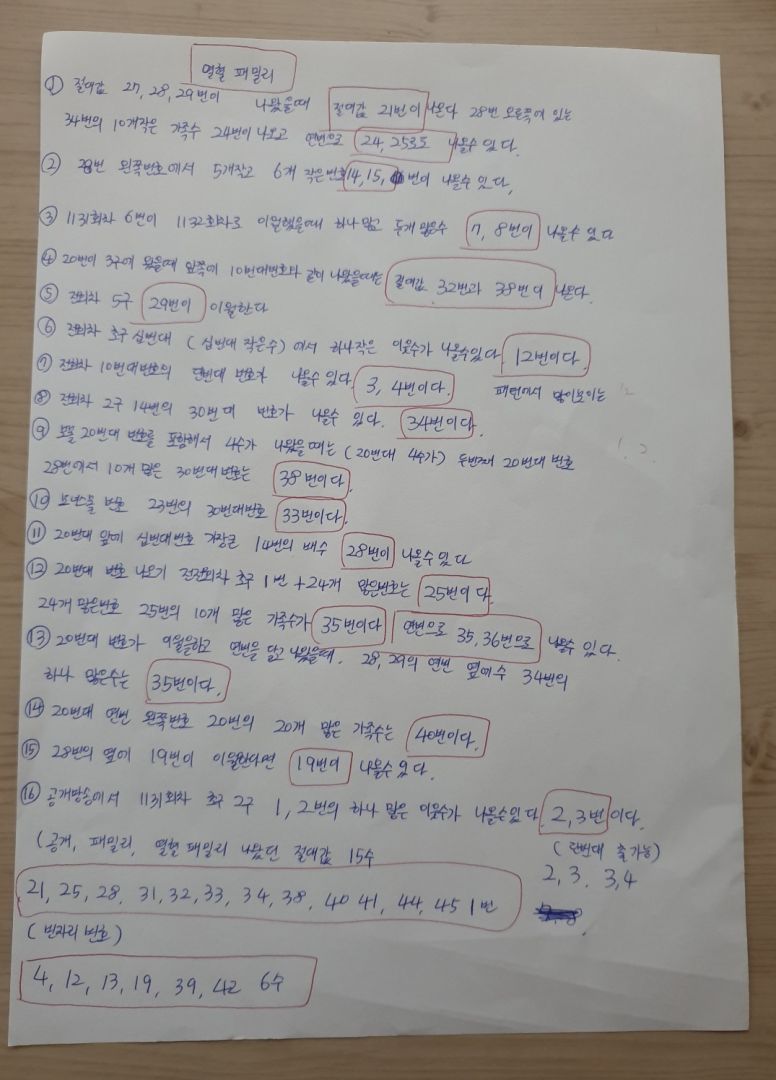 열혈 패밀리
① 절대값 27, 28, 29번이 나왔을때 절대값 21번이 나온다 28번 오른쪽에 있는
34번의 10개작은 가족수 24번이 나오고 연번으로 24, 25로도 나올수 있다.
② 28번 왼쪽번호에서 5개작고 6개 작은번호 14, 15, 번이 나올수 있다,
③ 1131회차 6번이 1132회차로 이월했을때 하나 많고 두개 많은수 7, 8번이 나올수 있다
④ 20번이 3구에 왔을때 앞쪽에 10번대번호와 같이 나왔을때는 절대값 32번과 38번이 나온다.
⑤ 전회차 5구 29번이 이월한다
⑥ 전회차 초구 십번대 (십번대 작은수)에서 하나작은 이웃수가 나올수있다. 12번이다.
⑦ 전회차 10번대번호의 단번대 번호가 나올수 있다. 3, 4번이다. 패턴에서 많이보이는
⑧ 전회차 2구 14번의 30번대 번호가 나올수 있다. 34번이다.
⑨ 보볼 20번대 번호를 포함해서 4수가 나왔을때는 (20번대 4수가) 두번째 20번대 번호
28번에서 10개 많은 30번대번호는 38번이다.
⑩ 보너스볼 번호 23번의 30번대번호 33번이다.
⑪ 20번대 앞에 십번대번호 가장큰 14번의 배수 28번이 나올수 있다
⑫ 20번대 번호 나오기 전전회차 초구 1번 +24개 많은번호는 25번이다.
24개 많은번호 25번의 10개 많은 가족수가 35번이다 연번으로 35, 36번으로 나올수 있다.
⑬ 20번대 번호가 이월을하고 연번을 달고 나왔을때. 28, 29의 연번 옆에수 34번의
하나 많은수는 35번이다.
⑭ 20번대 연번 왼쪽번호 20번의 20개 많은 가족수는 40번이다.
⑮ 28번의 옆에 19번이 이월한다면 19번이 나올수 있다.
⑯ 공개방송에서 1131회차 초구 2구 1, 2번의 하나 많은 이웃수가 나올수있다. 2, 3번이다.
(공개, 패밀리, 열혈 패밀리 나왔던 절대값 15수 (단번대 출 가능)
2, 3. 3, 4
21, 25, 28, 31, 32, 33, 34, 38, 40 41, 44, 45 1번
(빈자리 번호)
4, 12, 13, 19, 39, 42 6수